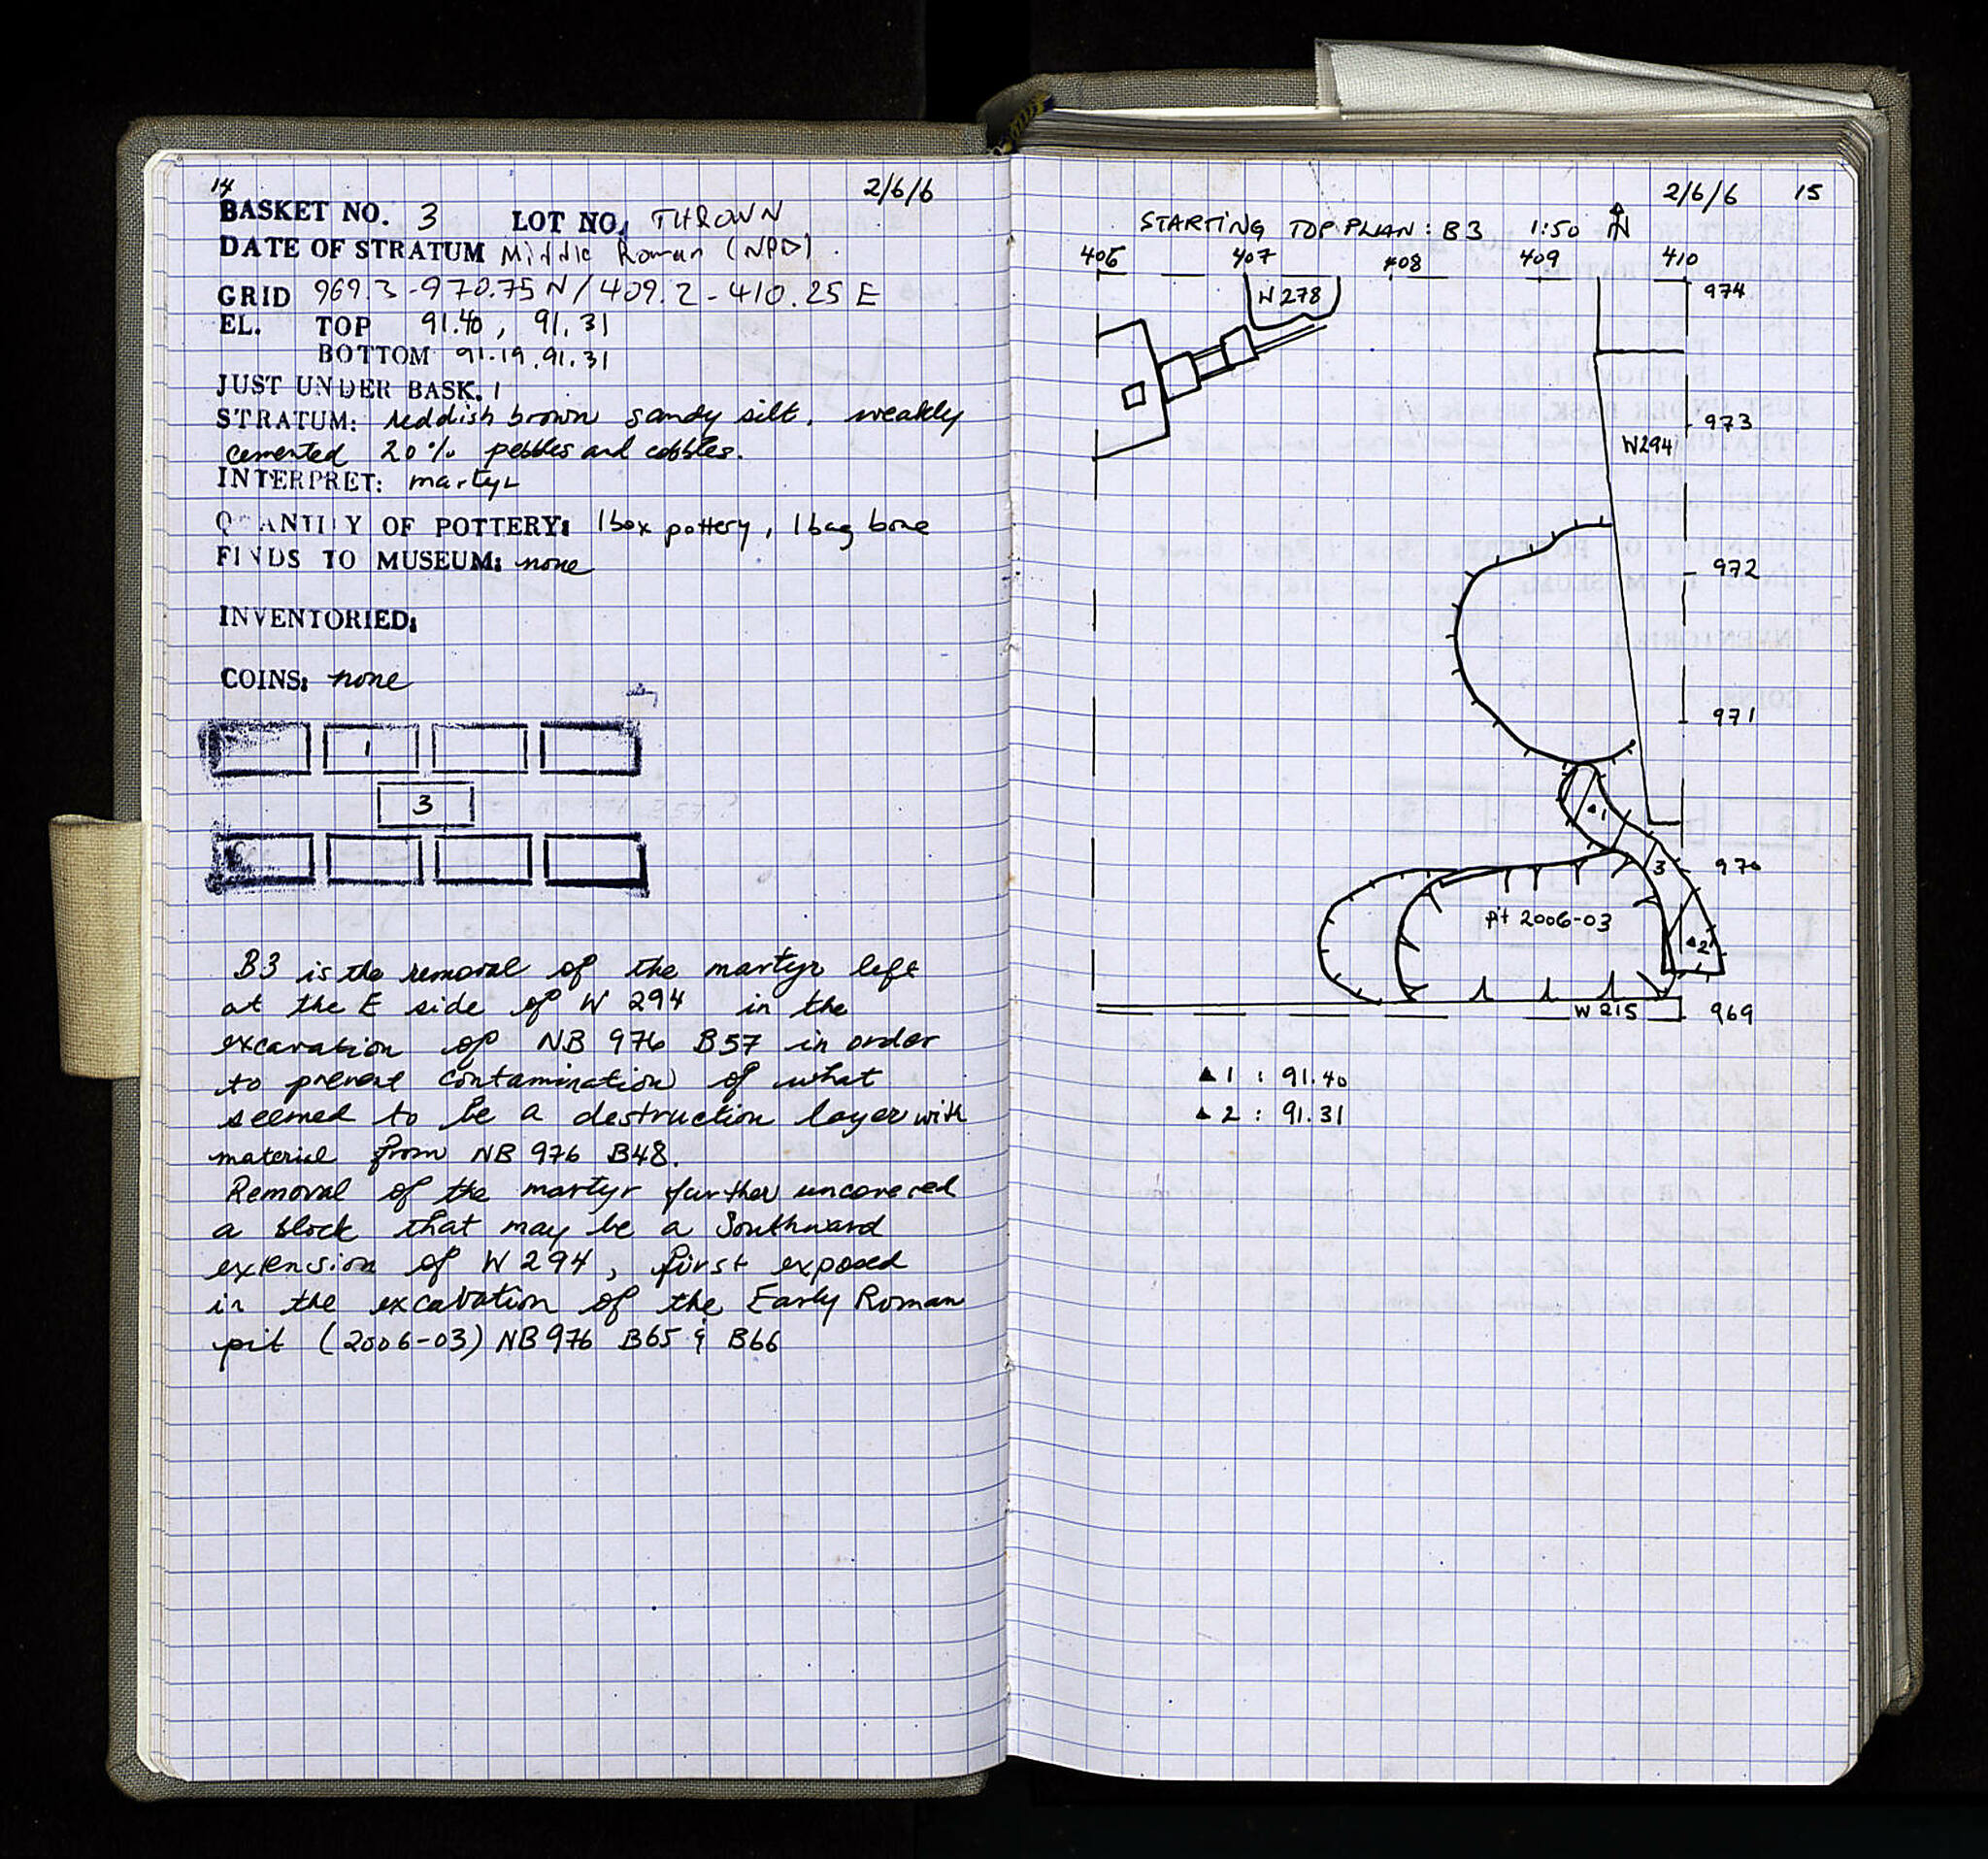 14
2/6/6
BASKET NO. 3 LOT NO. THROWN
DATE OF STRATUM Middle Roman (NPD).
GRID 969.3-970.75 N / 409.2-410.25 E
EL. TOP 91.40, 91.31
BOTTOM 91.19, 91.31
JUST UNDER BASK. 1
STRATUM: reddish brown sandy silt. weakly
cemented 20% pebbles and cobbles.
INTERPRET: martyr
QUANTITY OF POTTERY: 1 box pottery, 1 bag bone
FINDS TO MUSEUM: none
INVENTORIED:
COINS: none
1
3
B3 is the removal of the martyr left
at the E side of W 294 in the
excavation of NB 976 B57 in order
to prevent contamination of what
seemed to be a destruction layer with
material from NB 976 B48.
Removal of the martyr further uncovered
a block that may be a Southward
extension of W 294, first exposed
in the excavation of the Early Roman
pit (2006-03) NB 976 B65 & B66
2/6/6 15
STARTING TOP PLAN: B3 1:50 N
406 407 408 409 410
W 278
974
973
W294
972
971
▲1
3
970
Pit 2006-03
▲2
W 215
969
▲ 1 : 91.40
▲ 2 : 91.31